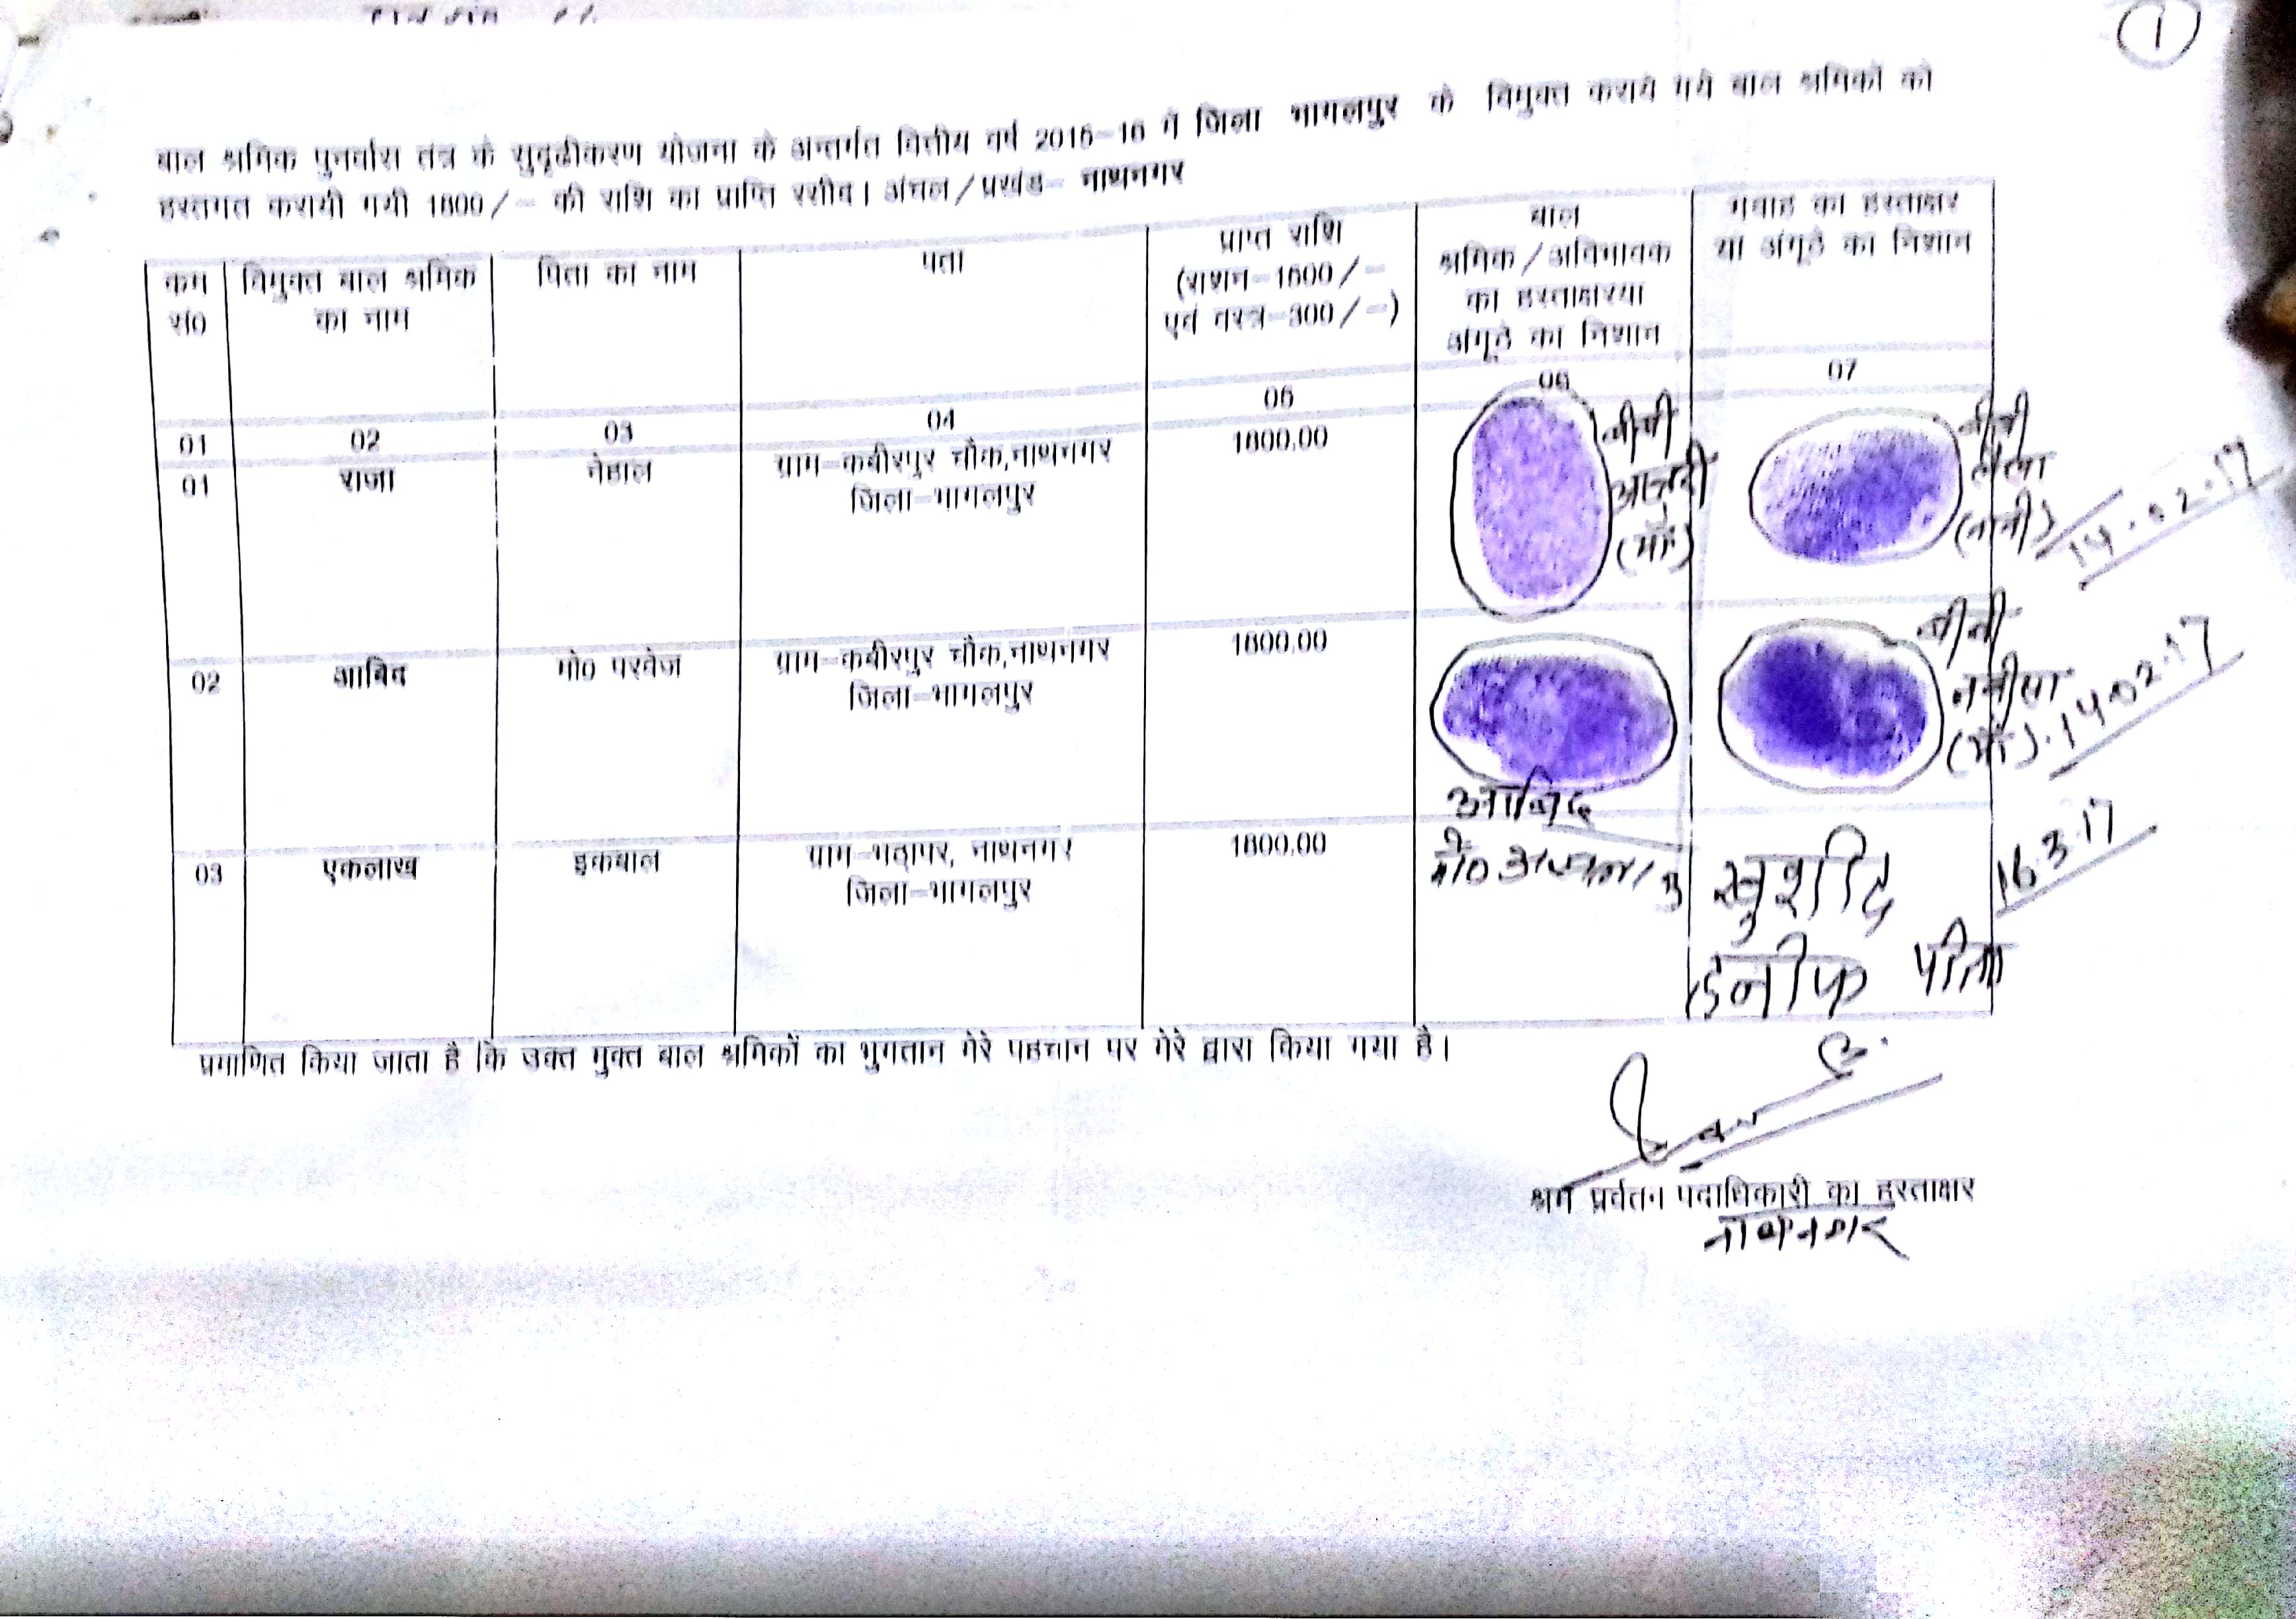 1
बाल श्रमिक पुनर्वास तंत्र के सुदृढीकरण योजना के अन्तर्गत वित्तीय वर्ष 2015-16 में जिला भागलपुर के विमुक्त कराये गये बाल श्रमिकों को
हस्तगत करायी गयी 1800/- की राशि का प्राप्ति रसीद। अंचल/प्रखंड- नाथनगर
कम सं0
विमुक्त बाल श्रमिक का नाम
पिता का नाम
पता
प्राप्त राशि (राशन-1500/- एवं वस्त्र-300/-)
बाल श्रमिक/अविभावक का हस्ताक्षरया अंगूठे का निशान
गवाह का हस्ताक्षर या अंगूठे का निशान
01 02 03 04 05 06 07
01 राजा नेहाल ग्राम-कबीरपुर चौक,नाथनगर 1800.00
जिला-भागलपुर
बीबी
(माँ)
बीबी
(नानी)
14.02.17
02 आबिद मो0 परवेज ग्राम-कबीरपुर चौक,नाथनगर 1800.00
जिला-भागलपुर
आबिद
बीबी
(माँ).14.02.17
03 एकलाख इकबाल ग्राम-भठापर, नाथनगर 1800.00
जिला-भागलपुर
मो0
खुर्शीद
16.3.17
हनीफ पीता
प्रमाणित किया जाता है कि उक्त मुक्त बाल श्रमिकों का भुगतान मेरे पहचान पर मेरे द्वारा किया गया है।
श्रम प्रर्वतन पदाधिकारी का हस्ताक्षर
नाथनगर